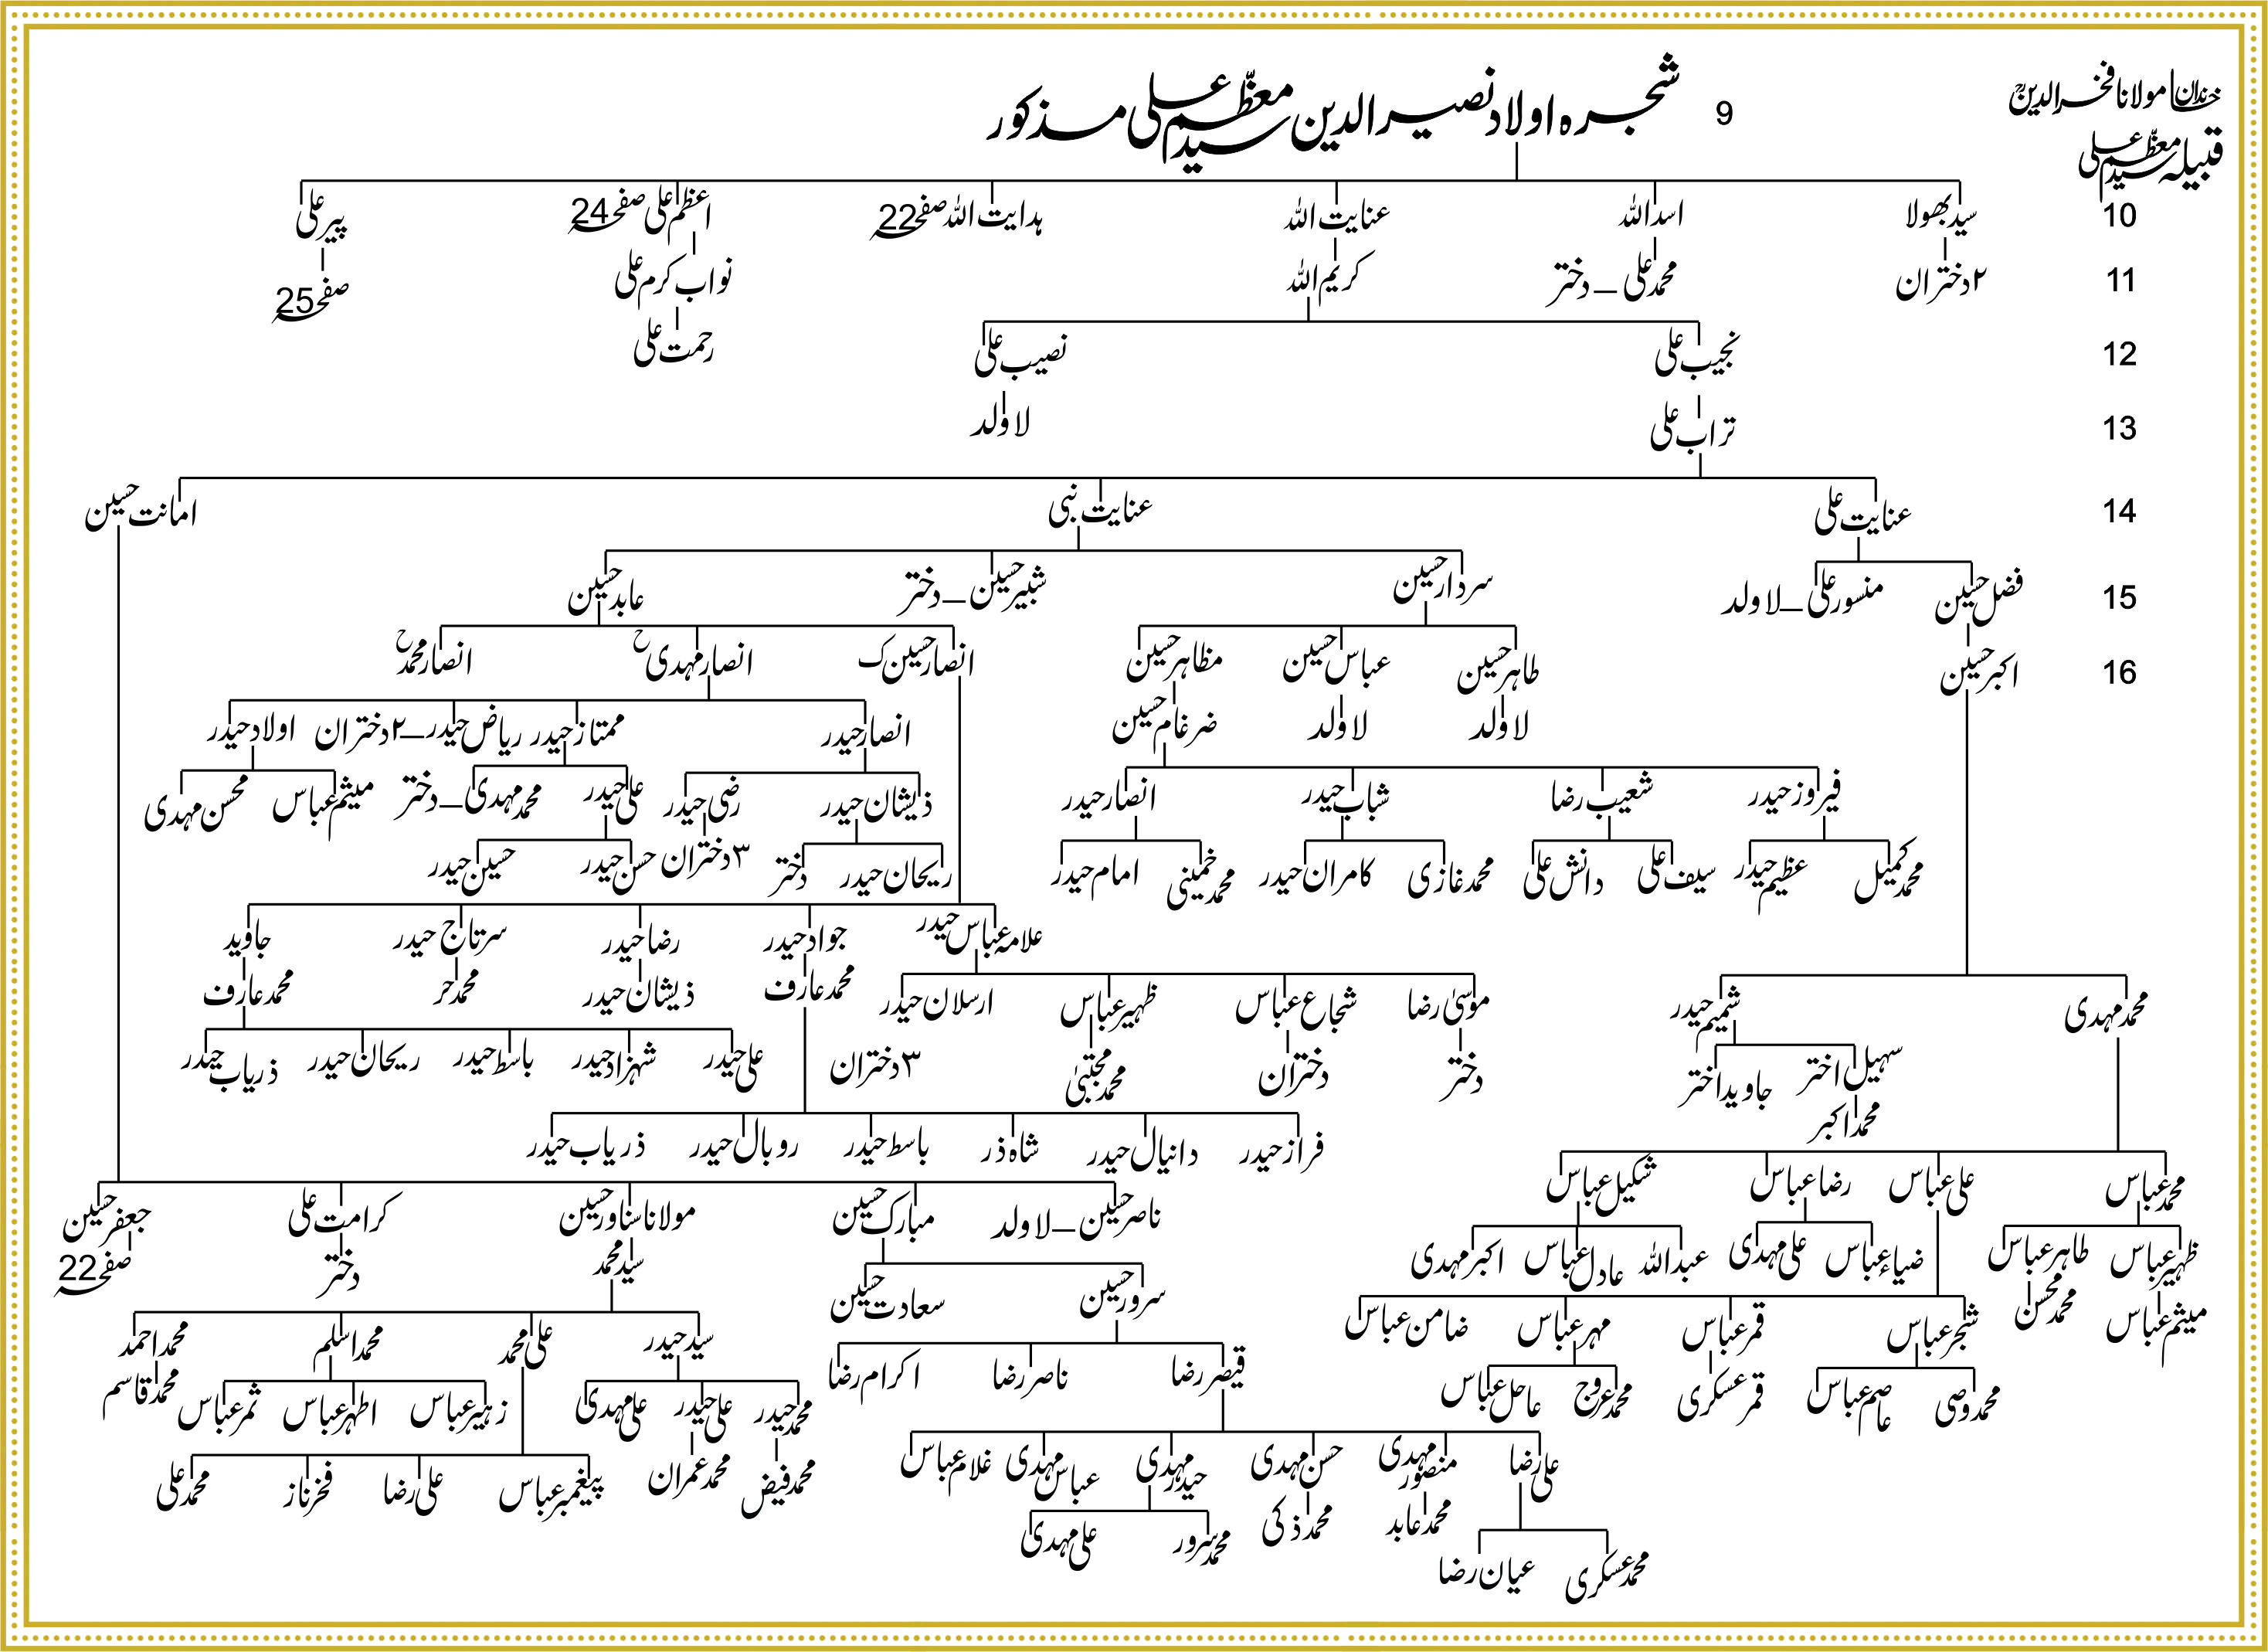 خاندان مولانا فخرالدینؒ
قبیلہ سید معظّم علی
9 شجرہ اولاد نصیر الدین سید معظّم علی مذکور
10 سید بھولا اسد اللہ عنایت اللہ ہدایت اللہ صفحہ 22 اعظم علی صفحہ 24 پیر علی
11 ۲ دختران محمد علی _ دختر کریم اللہ نواب کرم علی صفحہ 25
12 نجیب علی نصیب علی رحمت علی
13 تراب علی لاولد
14 عنایت علی عنایت نبی امانت حسین
15 فضل حسین منسور علی _ لاولد سردار حسین شبیر حسین _ دختر عابد حسین
16 اکبر حسین طاہر حسین عباس حسین مظاہر حسین انصار حسین ک انصار مہدی ح انصار محمد ح
لاولد لاولد ضرغام حسین انصار حیدر ممتاز حیدر ریاض حیدر _ ۲ دختران اولاد حیدر
فیروز حیدر شعیب رضا شباب حیدر انصار حیدر ذیشان حیدر رضی حیدر علی حیدر محمد مہدی _ دختر میثم عباس محسن مہدی
محمد کمیل عظیم حیدر سیف علی دانش علی محمد غازی کامران حیدر محمد خمینی امام حیدر ریحان حیدر دختر ۳ دختران حسن حیدر حسین حیدر
علامہ عباس حیدر جواد حیدر رضا حیدر سرتاج حیدر جاوید
محمد مہدی شمیم حیدر موسیٰ رضا شجاع عباس ظہیر عباس ارسلان حیدر محمد عارف ذیشان حیدر محمد حر محمد عارف
سہیل اختر جاوید اختر دختر دختران محمد مجتبیٰ ۳ دختران علی حیدر شہزاد حیدر باسط حیدر ریحان حیدر ذریاب حیدر
محمد اکبر فراز حیدر دانیال حیدر شاہ ذر باسط حیدر روبال حیدر ذریاب حیدر
محمد عباس علی عباس رضا عباس شکیل عباس ناصر حسین _ لاولد مبارک حسین مولانا سناور حسین کرامت علی جعفر حسین
ظہیر عباس طاہر عباس ضیاء عباس علی مہدی عبداللہ عادل عباس اکبر مہدی سید محمد دختر صفحہ 22
میثم عباس محمد محسن شجر عباس قمر عباس مہر عباس ضامن عباس سرور حسین سعادت حسین سید حیدر علی محمد محمد اسلم محمد احمد
محمد وصی عاصم عباس قمر عسکری محمد عروج عاحل عباس قیصر رضا ناصر رضا اکرام رضا محمد حیدر علی حیدر علی مہدی زہیر عباس اطہر عباس ثمر عباس محمد قاسم
علی رضا منصور مہدی حسن مہدی حیدر مہدی عباس مہدی غلام عباس محمد فیض محمد عمران پیغمبر عباس علی رضا فخر ناز محمد علی
محمد عسکری عیان رضا محمد عابد محمد ذکی محمد سرور علی مہدی